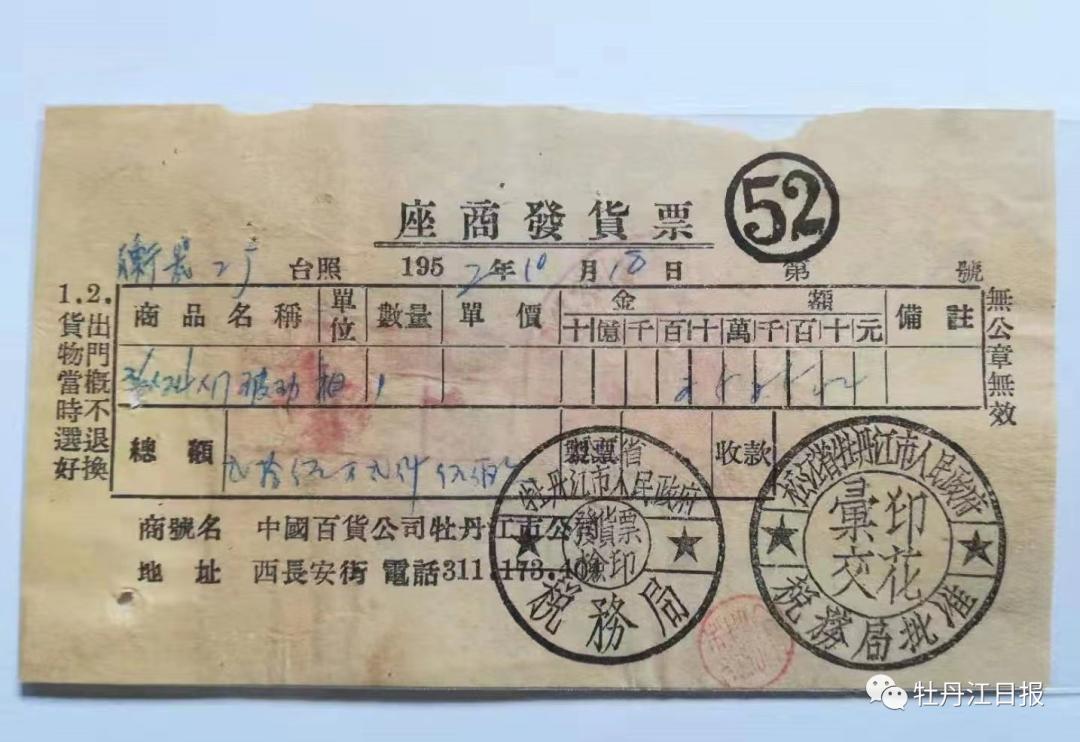 座商發貨票
52
台照 1952年10月18日 第 號
商品名稱 單位 數量 單價 金額 備註
十億千百十萬千百十元
箱 1
總額 收款
貳拾伍万貳仟伍佰
商號名 中國百貨公司牡丹江市公
地址 西長安街 電話311.173.404
1.貨物當時選好
2.出門概不退換
無公章無效
省
牡丹江市人民政府
發貨票
檢印
税務局
松江省牡丹江市人民政府
印花
彙交
税務局批准
牡丹江日报